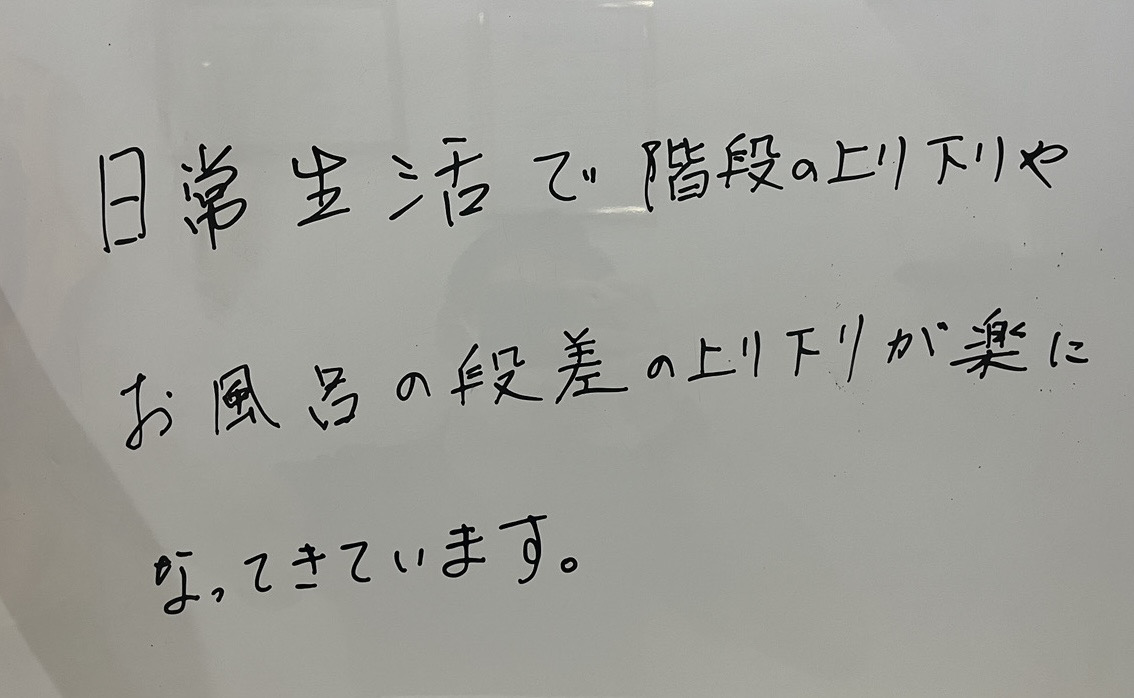 日常生活で階段の上り下りや
お風呂の段差の上り下りが楽に
なってきています。